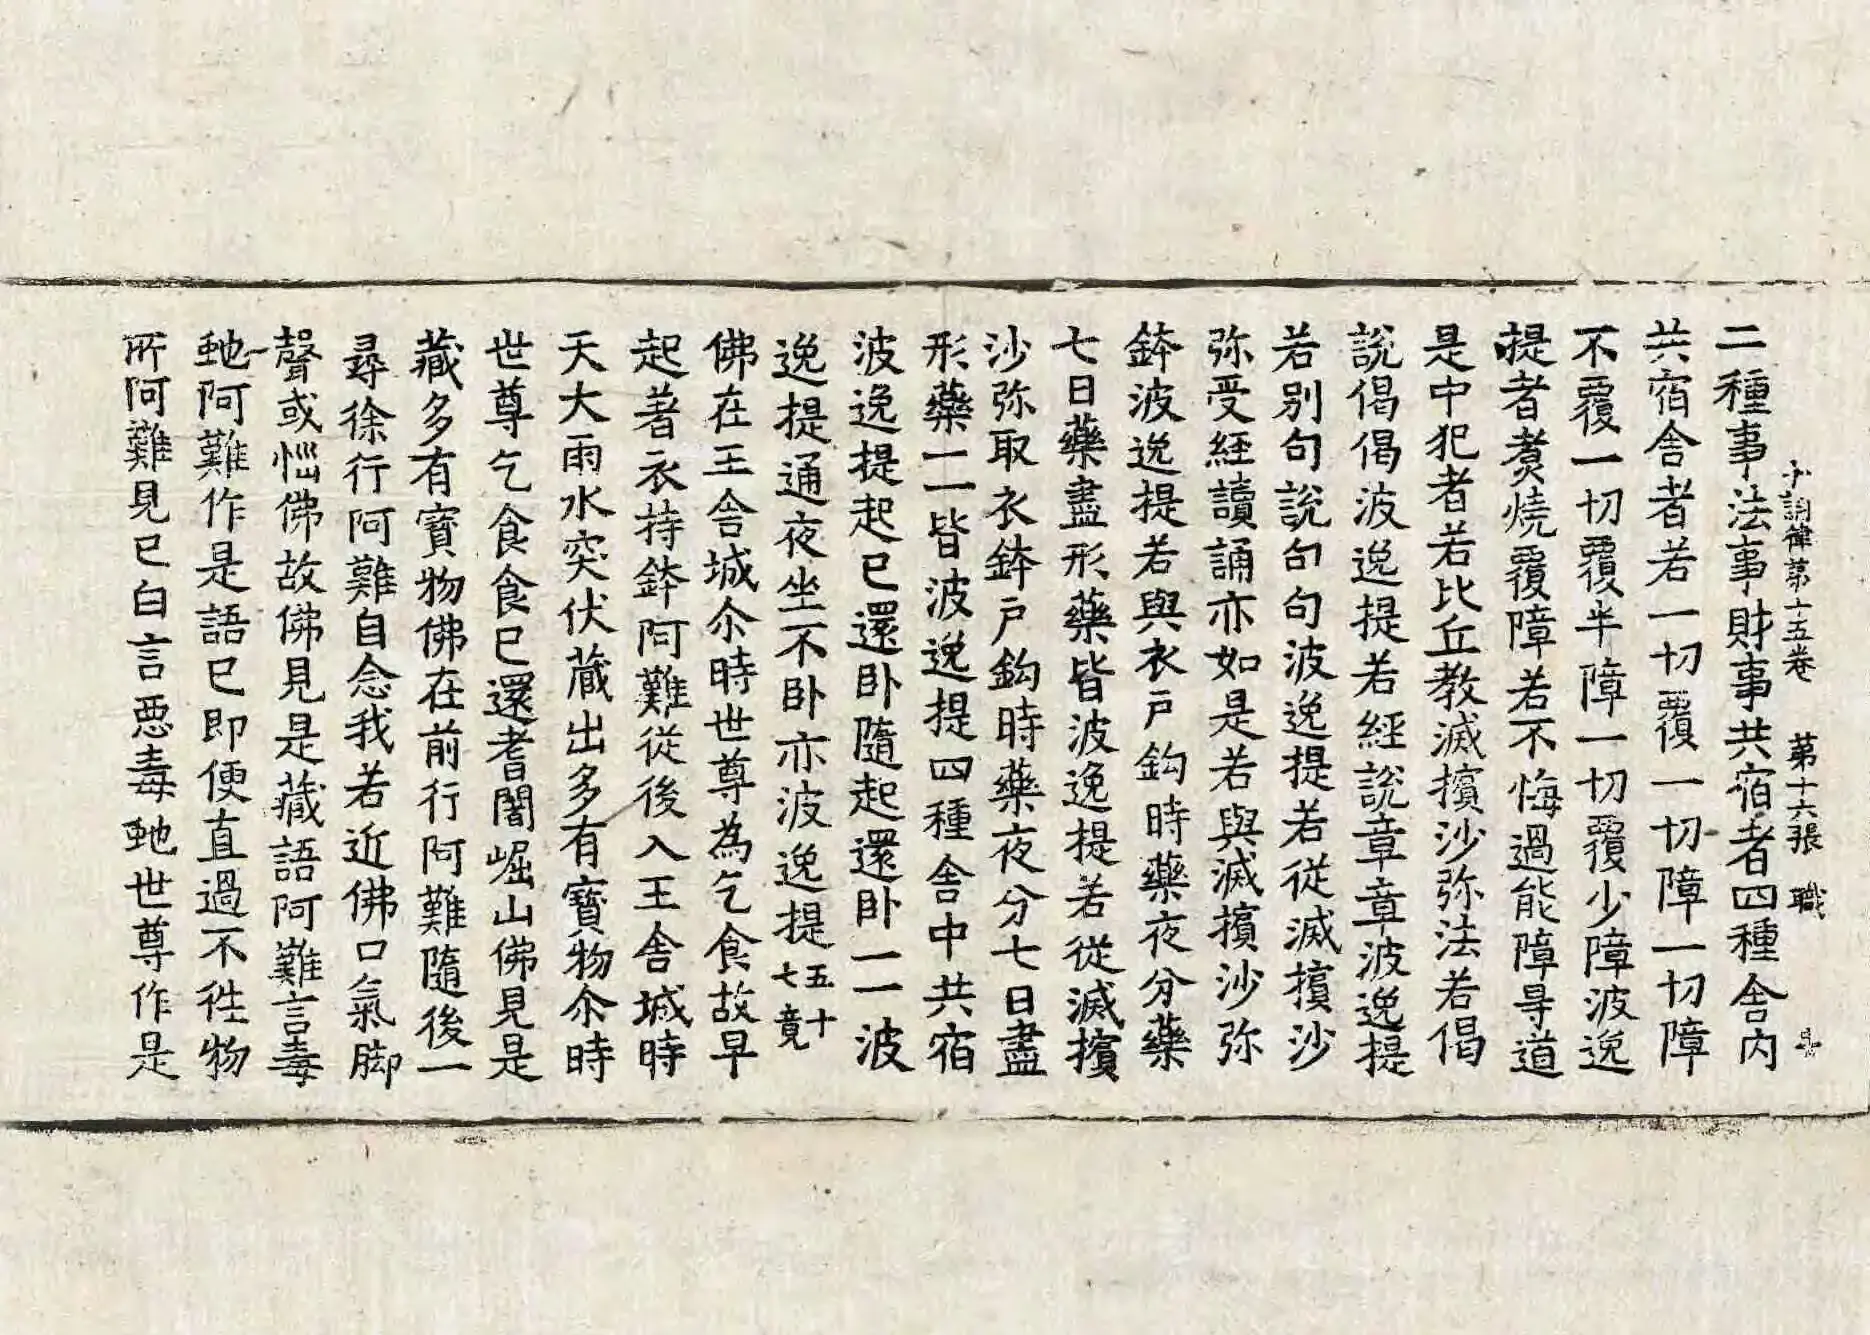 十誦律第十五卷　第十六張　職
二種事法事財事共宿者四種舍内
共宿舍者若一切覆一切障一切障
不覆一切覆半障一切覆少障波逸
提者煑燒覆障若不悔過能障㝵道
是中犯者若比丘教滅擯沙弥法若偈
說偈偈波逸提若經說章章波逸提
若別句說句句波逸提若從滅擯沙
弥受經讀誦亦如是若與滅擯沙弥
鉢波逸提若與衣戶鈎時藥夜分藥
七日藥盡形藥皆波逸提若從滅擯
沙弥取衣鉢戶鈎時藥夜分七日盡
形藥一一皆波逸提四種舍中共宿
波逸提起已還卧隨起還卧一一波
逸提通夜坐不卧亦波逸提五十七竟
佛在王舍城尒時世尊為乞食故早
起著衣持鉢阿難從後入王舍城時
天大雨水突伏藏出多有寶物尒時
世尊乞食食已還耆闍崛山佛見是
藏多有寶物佛在前行阿難隨後一
尋徐行阿難自念我若近佛口氣脚
聲或惱佛故佛見是藏語阿難言毒
虵阿難作是語已即便直過不徃物
所阿難見已白言惡毒虵世尊作是